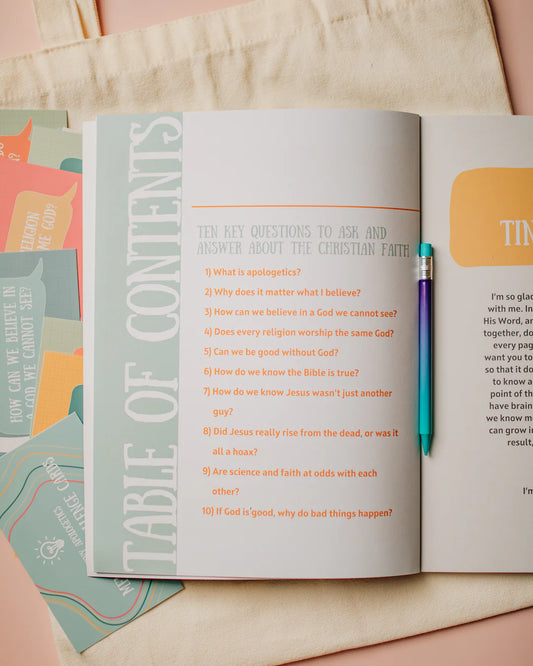 TABLE OF CONTENTS
TEN KEY QUESTIONS TO ASK AND
ANSWER ABOUT THE CHRISTIAN FAITH
1) What is apologetics?
2) Why does it matter what I believe?
3) How can we believe in a God we cannot see?
4) Does every religion worship the same God?
5) Can we be good without God?
6) How do we know the Bible is true?
7) How do we know Jesus wasn't just another
guy?
8) Did Jesus really rise from the dead, or was it
all a hoax?
9) Are science and faith at odds with each
other?
10) If God is good, why do bad things happen?
I'm so
with me. In
His Word,
together,
every
want you to
so that it
to know a
point of
have
we know
can grow
result,
I'm
HOW CAN WE BELIEVE IN
A GOD WE CANNOT SEE?
GOD?
APOLOGETICS
CARDS